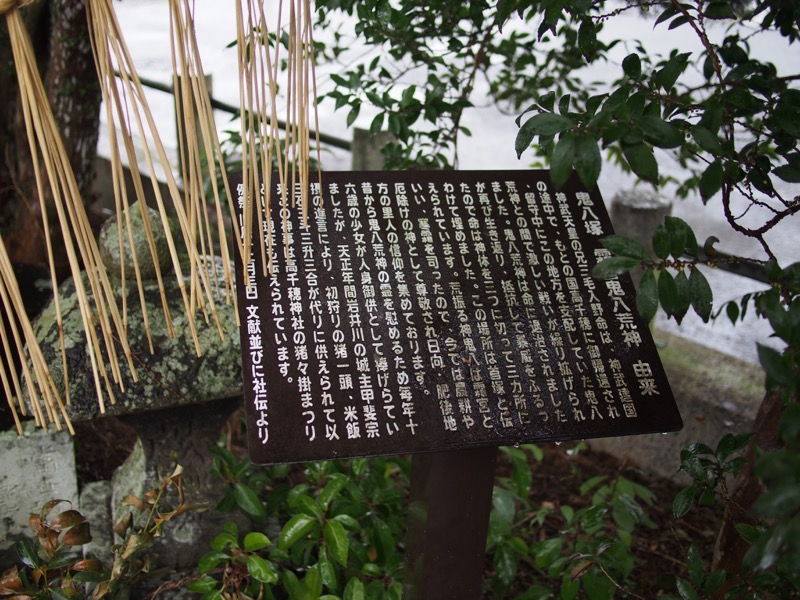 鬼八塚 霊 鬼八荒神 由来
神武天皇の兄三毛入野命は、神武建国
の途中で、もとの国高千穂に御帰還され
留守中にこの地方を支配していた鬼八
荒神との間で激しい戦いが繰り拡げられ
ました。鬼八荒神は命に退治されました
が再び生き返り、抵抗して暴威をふるっ
たので命は神体を三つに切って三カ所に
わけて埋めました。この場所は首塚と伝
えられています。荒振る神鬼八は霜宮と
いい、霜を司ったので、今では農耕や
厄除けの神として尊敬され日向、肥後地
方の里人の信仰を集めております。
昔から鬼八荒神の霊を慰めるため毎年十
六歳の少女が人身御供として捧げらてい
ましたが、天正年間岩井川の城主甲斐宗
摂の進言により、初狩りの猪一頭、米飯
三石三斗三升三合が代りに供えられて以
来この神事は高千穂神社の猪々掛まつり
として現在も伝えられています。
例祭 月 日 文献並びに社伝より